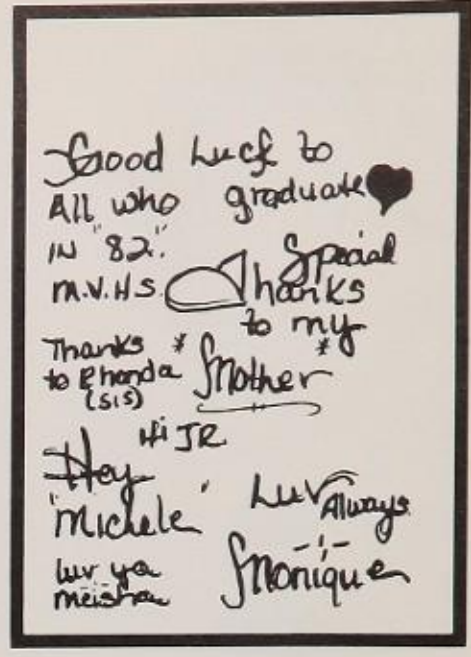 Good Luck to
All who graduate
IN "82".
M.V.H.S.
Special
Thanks
to my
*Mother*
Thanks
to Rhonda
(SIS)
Hi JR
Hey
'Michele'
Luv Always
Monique
luv ya
Meisha